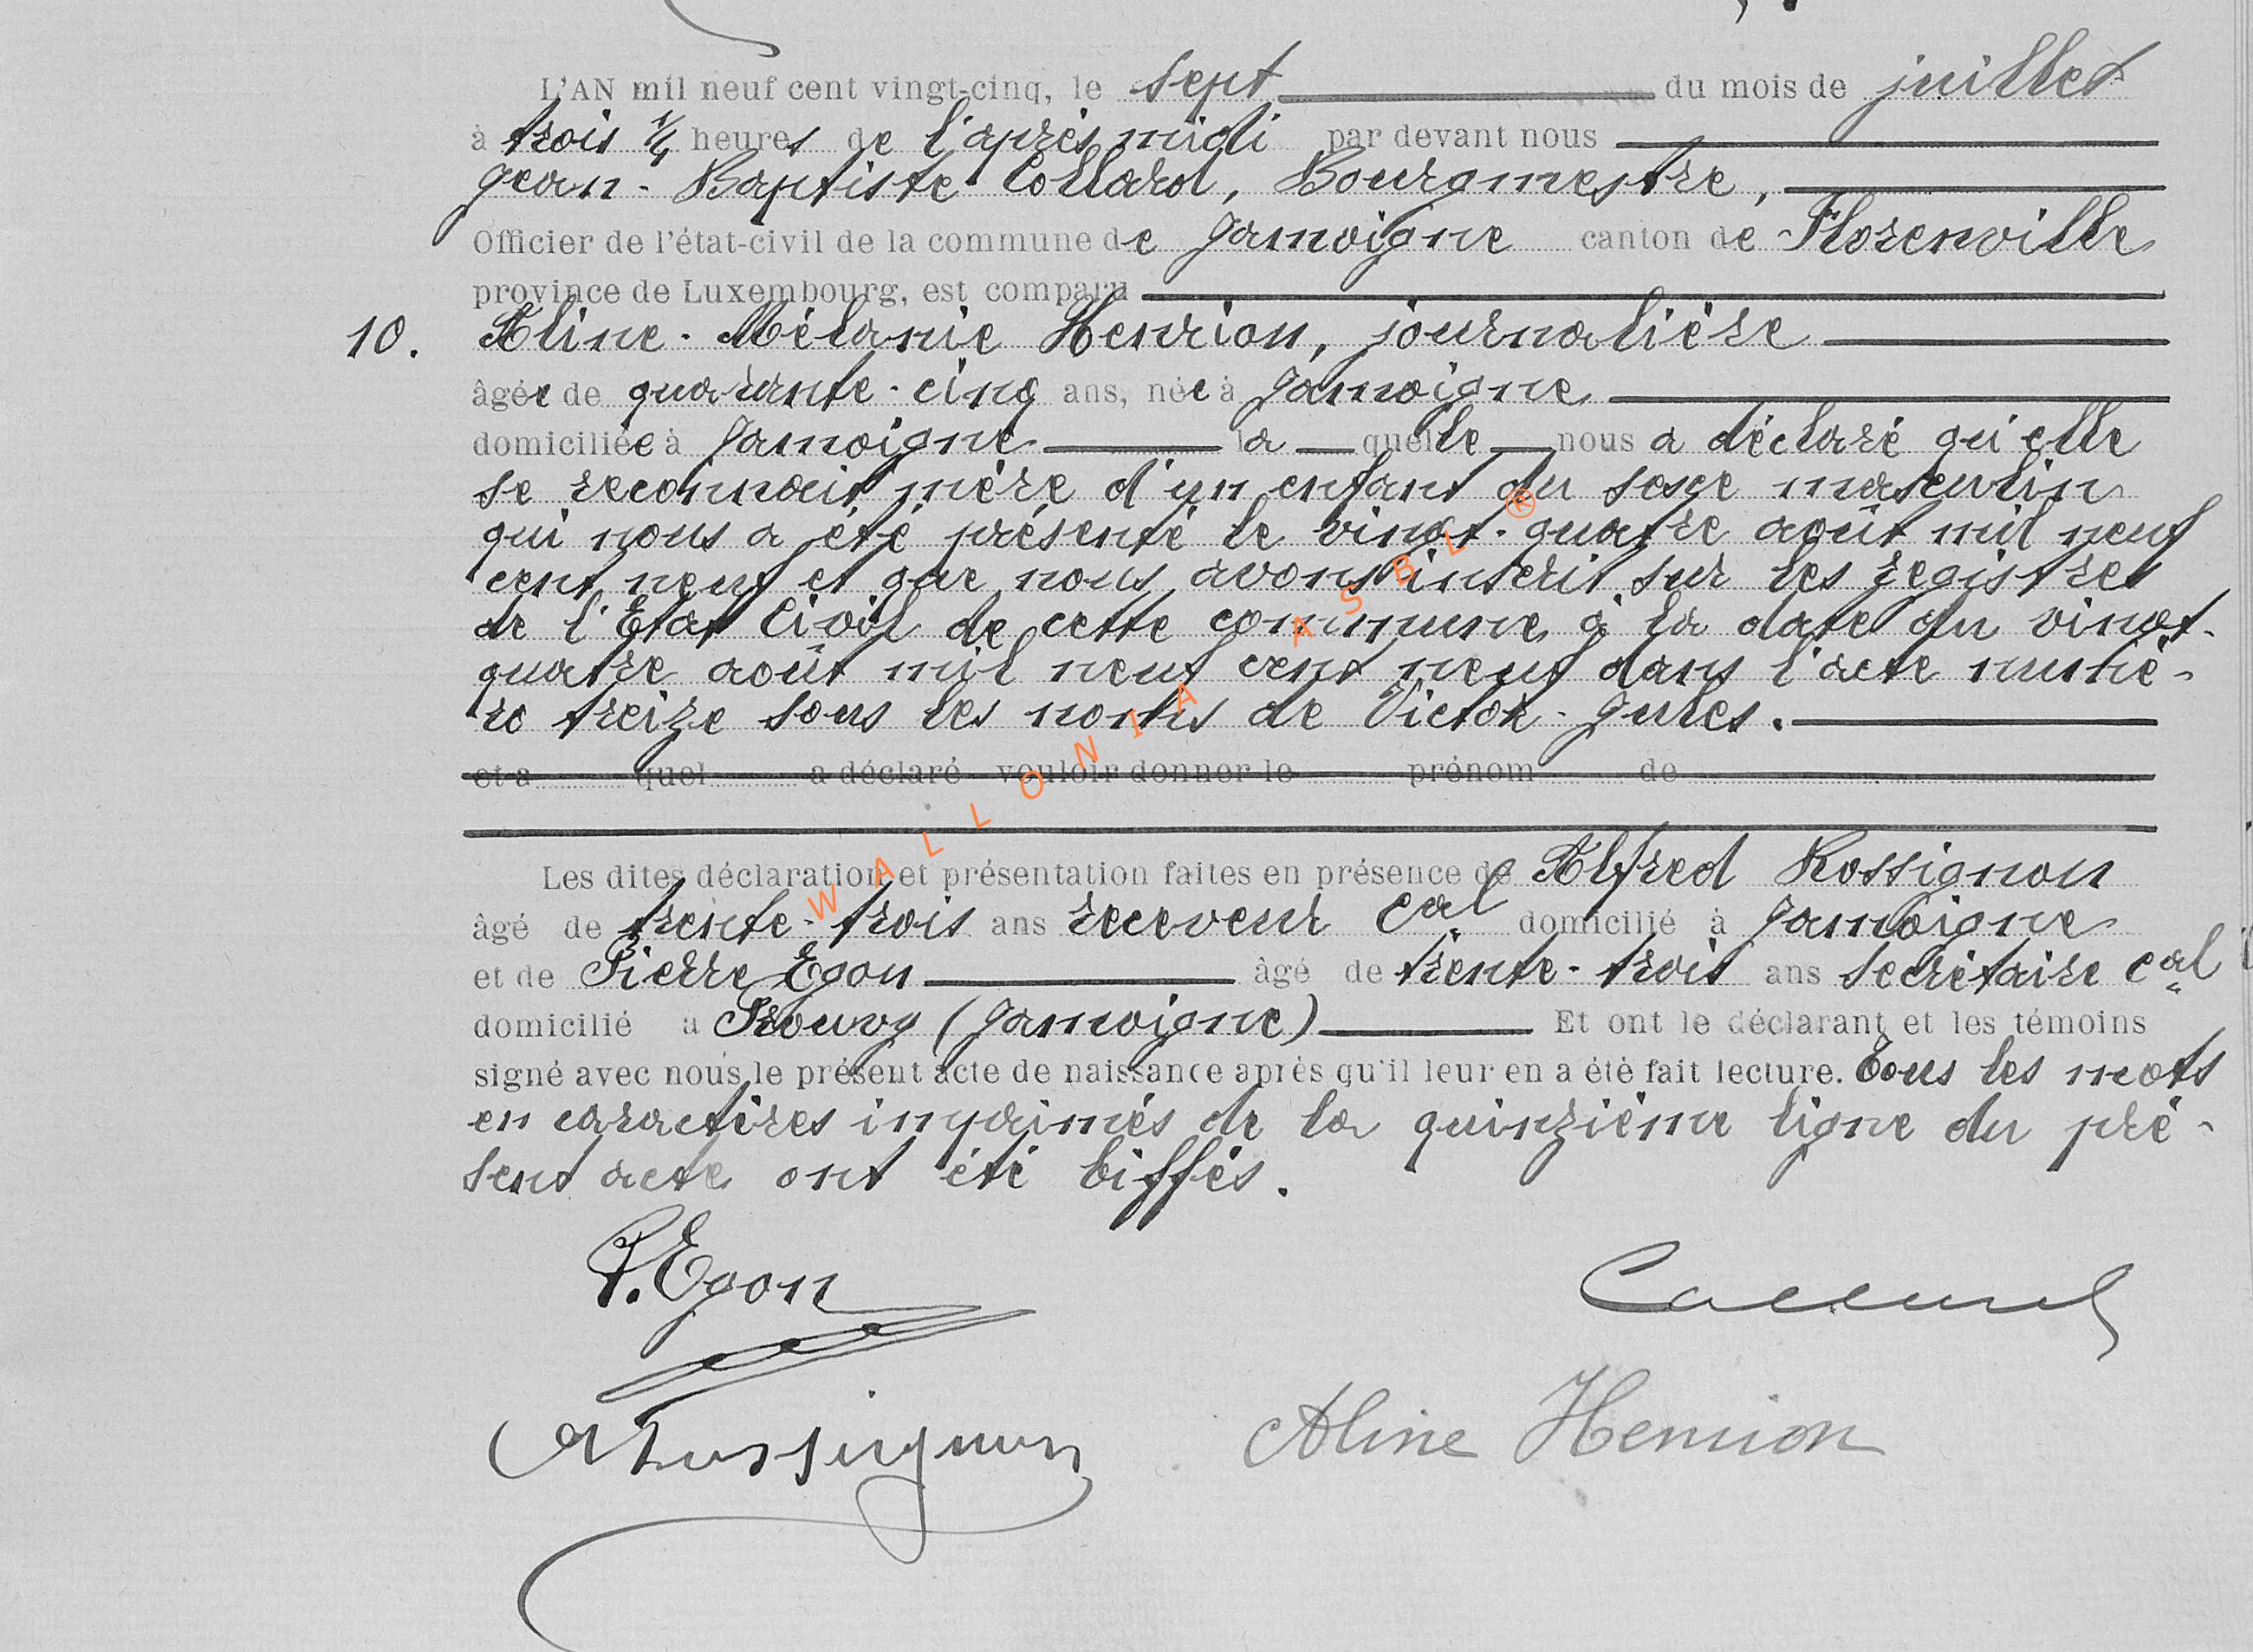 L'AN mil neuf cent vingt-cinq, le sept du mois de juillet
à trois 1/4 heures de l'après midi par devant nous
Jean-Baptiste Collard, Bourgmestre,
Officier de l'état-civil de la commune de Jamoigne canton de Florenville
province de Luxembourg, est comparu
10. Aline-Mélanie Henrion, journalière
âgée de quarante-cinq ans, née à Jamoigne
domiciliée à Jamoigne laquelle nous a déclaré qu'elle
se reconnait mère d'un enfant du sexe masculin
qui nous a été présenté le vingt-quatre août mil neuf
cent neuf et que nous avons inscrit sur les registres
de l'Etat Civil de cette commune à la date du vingt-
quatre août mil neuf cent neuf dans l'acte numé-
ro treize sous les noms de Victor-Jules.
et a quel a déclaré vouloir donner le prénom de
Les dites déclaration et présentation faites en présence de Alfred Rossignon
âgé de trente-trois ans receveur cal domicilié à Jamoigne
et de Pierre Egon âgé de trente-trois ans secrétaire cal
domicilié à Prouvy (Jamoigne) Et ont le déclarant et les témoins
signé avec nous le présent acte de naissance après qu'il leur en a été fait lecture. Tous les mots
en caractères imprimés de la quinzième ligne du pré-
sent acte ont été biffés.
P. Egon
Collard
ARossignon
Aline Henrion
WALLONIA ASBL ®